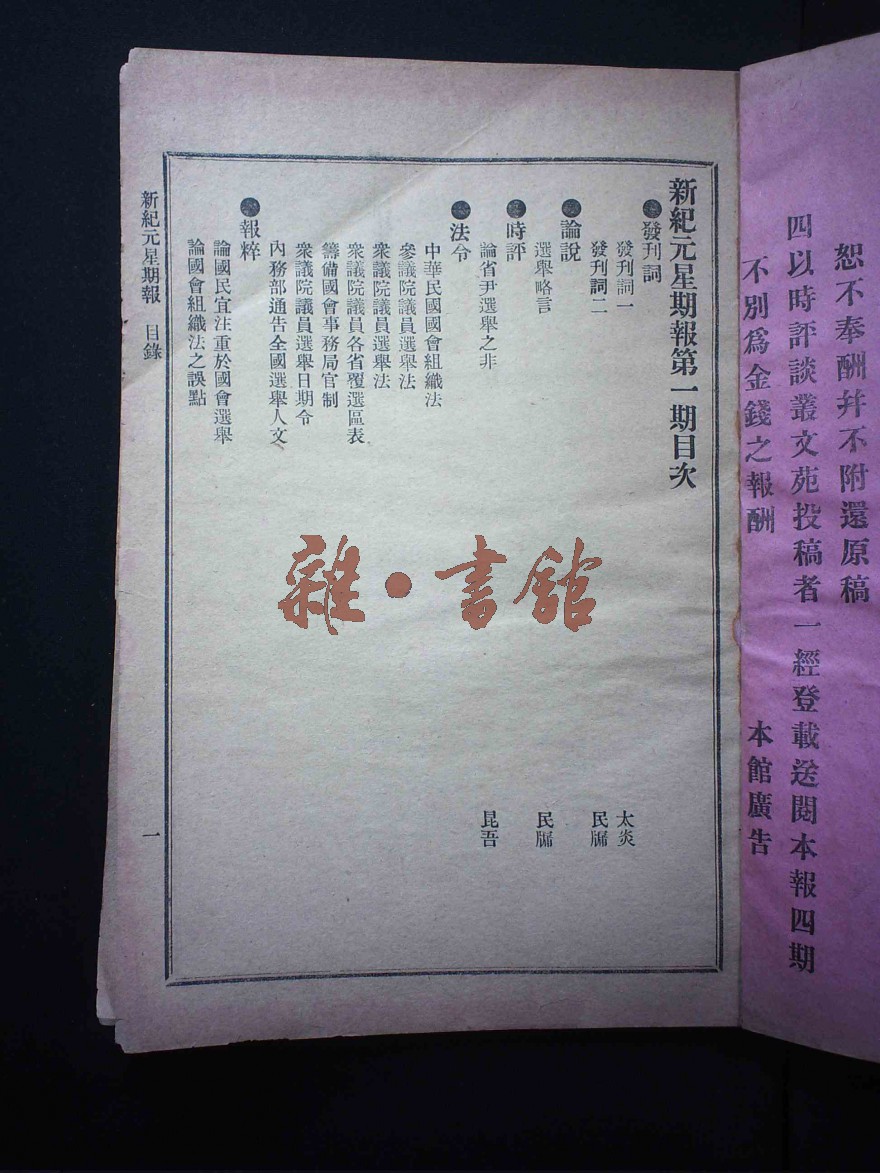 恕不奉酬幷不附還原稿
四以時評談叢文苑投稿者一經登載送閱本報四期
不別爲金錢之報酬
本館廣告
新紀元星期報第一期目次
●發刊詞
發刊詞一 太炎
發刊詞二 民牖
●論說
選舉略言 民牖
●時評
論省尹選舉之非 昆吾
●法令
中華民國國會組織法
參議院議員選舉法
衆議院議員選舉法
衆議院議員各省覆選區表
籌備國會事務局官制
衆議院議員選舉日期令
內務部通告全國選舉人文
●報粹
論國民宜注重於國會選舉
論國會組織法之誤點
新紀元星期報 目錄 一
雜·書館